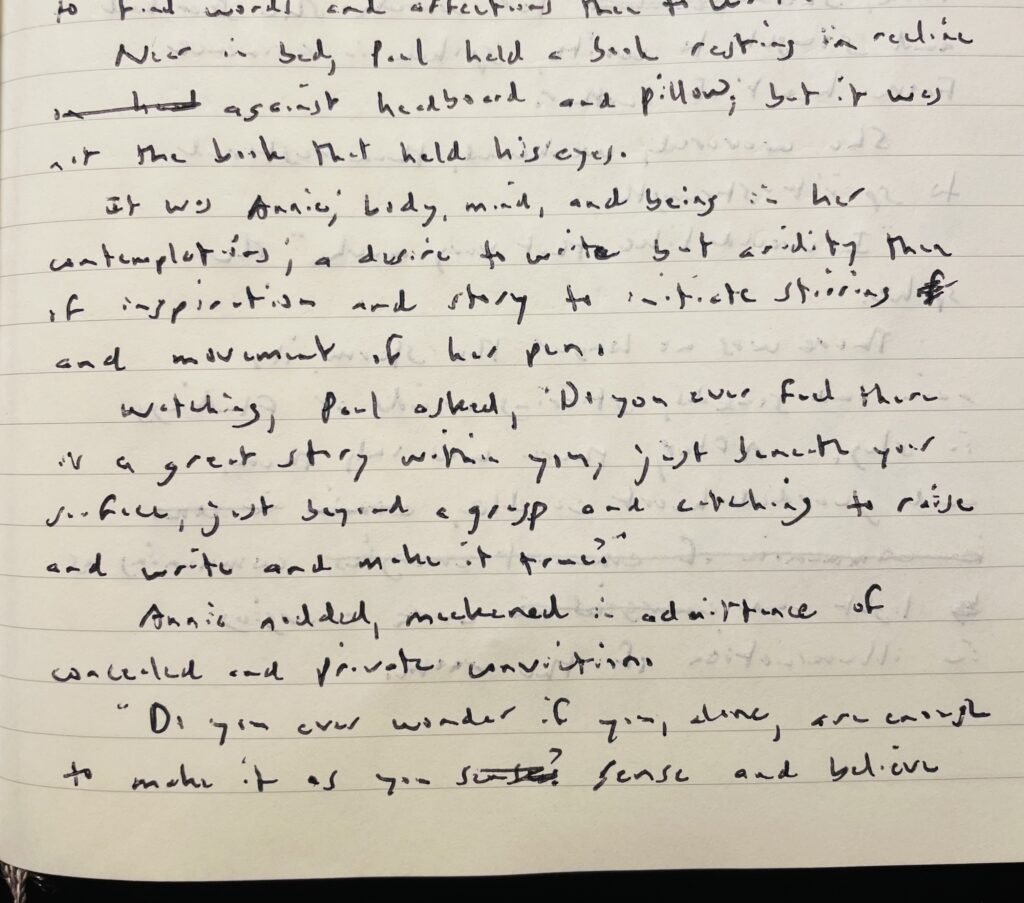 to find words and affections then to
Near in bed, Paul held a book resting in recline
in hand against headboard and pillow; but it was
not the book that held his eyes.
It was Annie; body, mind, and being in her
contemplations; a desire to write but aridity then
of inspiration and story to initiate stirring of
and movement of her pen.
Watching, Paul asked, "Do you ever feel there
is a great story within you, just beneath your
surface, just beyond a grasp and catching to raise
and write and make it true?"
Annie nodded, meekened in admittance of
concealed and private conviction.
"Do you ever wonder if you, alone, are enough
to make it as you sense? sense and believe